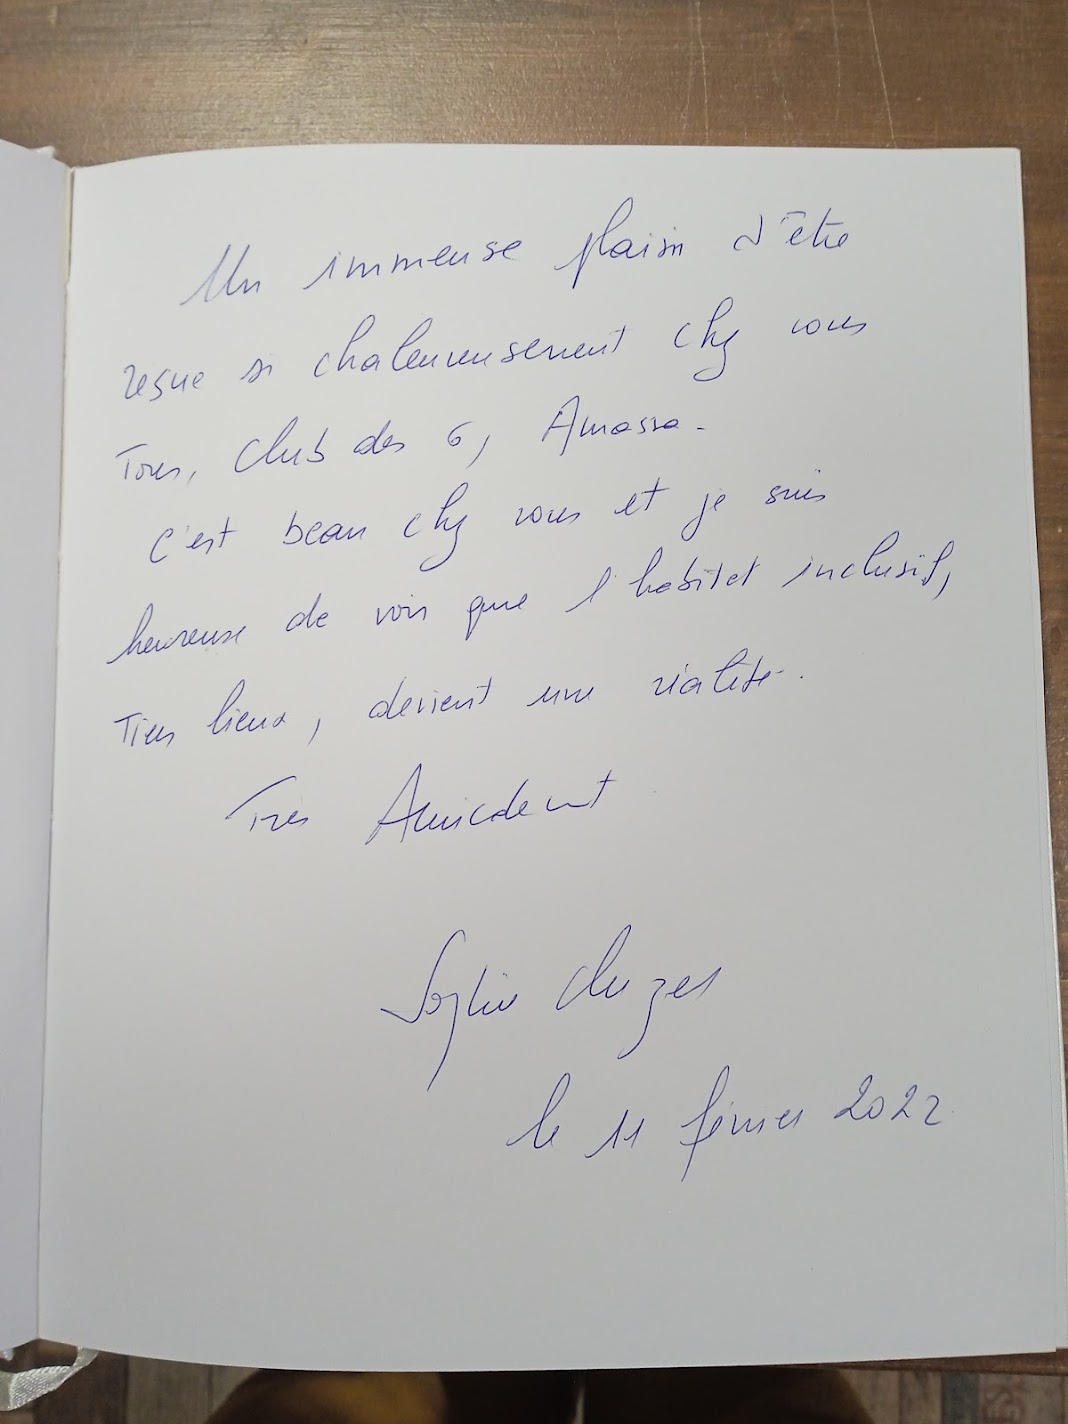 Un immense plaisir d'être
reçue si chaleureusement chez vous
Tous, Club des 6, Amassa.
C'est beau chez vous et je suis
heureuse de voir que l'habitat inclusif,
Tiers lieux, devient une réalité.
Très Amicalement
Sophie
le 11 février 2022